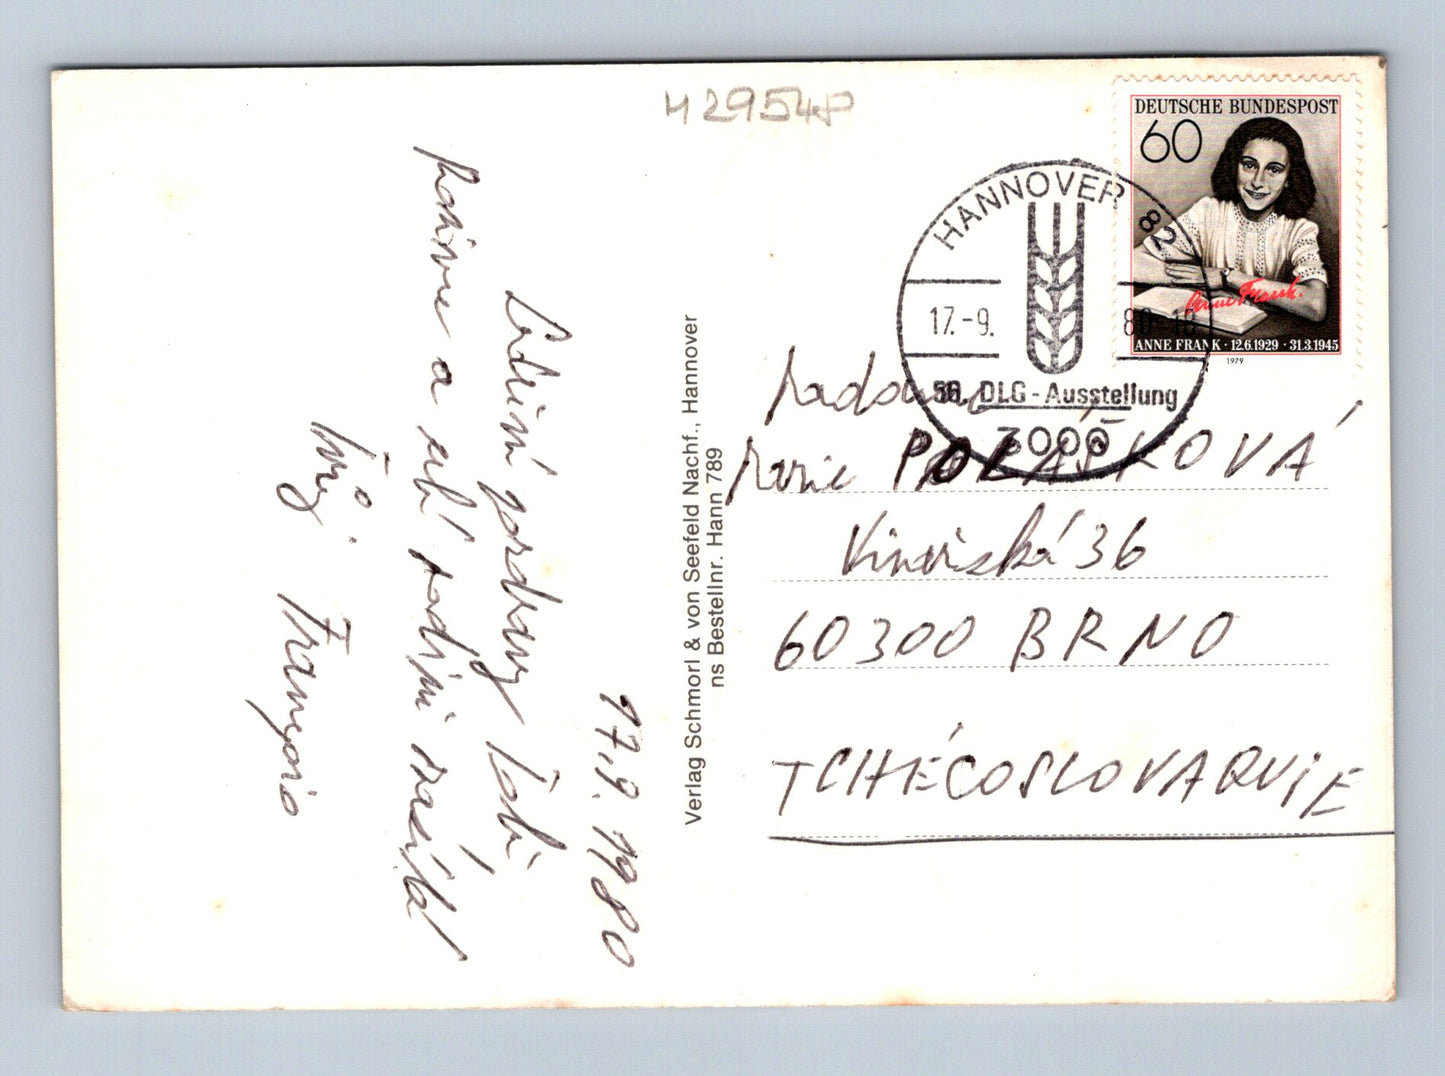 M2954P
DEUTSCHE BUNDESPOST
60
Anne Frank.
ANNE FRANK · 12.6.1929 · 31.3.1945
1979
HANNOVER 82
17.-9. 80-18
56. DLG-Ausstellung
3000
Marie POLÁŠKOVÁ
Vinařská 36
60300 BRNO
TCHÉCOSLOVAQUIE
Verlag Schmorl & von Seefeld Nachf., Hannover
ns Bestellnr. Hann 789
17.9.1980
Srdečné pozdravy Tobě
a celé rodině zasílá
Tvůj